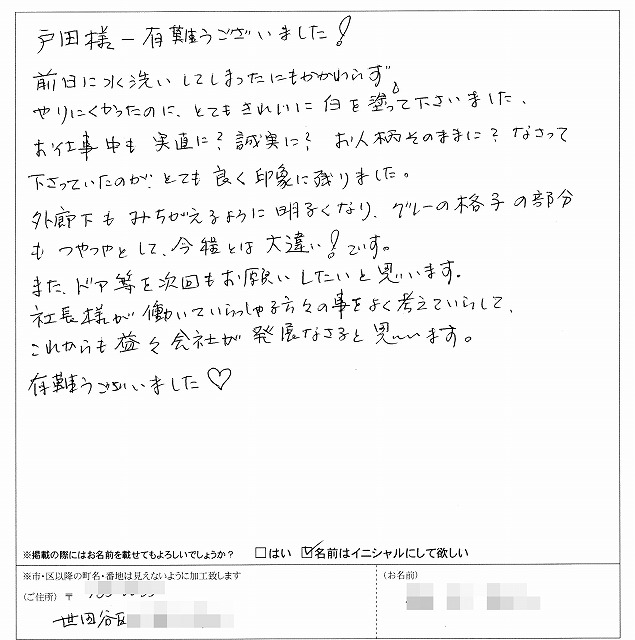 戸田様ー有難うございました!
前日に水洗いしてしまったにもかかわらず。
やりにくかったのに、とてもきれいに白を塗って下さいました、
お仕事中も実直に?誠実に?お人柄そのままに?なさって
下さっていたのが、とても良く印象に残りました。
外廊下もみちがえるように明るくなり、グレーの格子の部分
もつやつやとして、今迄とは大違い!です。
また、ドア等を次回もお願いしたいと思います.
社長様が働いていらっしゃる方々の事をよく考えていらして、
これからも益々会社が発展なさると思います。
有難うございました♡
※掲載の際にはお名前を載せてもよろしいでしょうか? □はい ☑名前はイニシャルにして欲しい
※市・区以降の町名・番地は見えないように加工致します
(ご住所) 〒
世田谷区
(お名前)